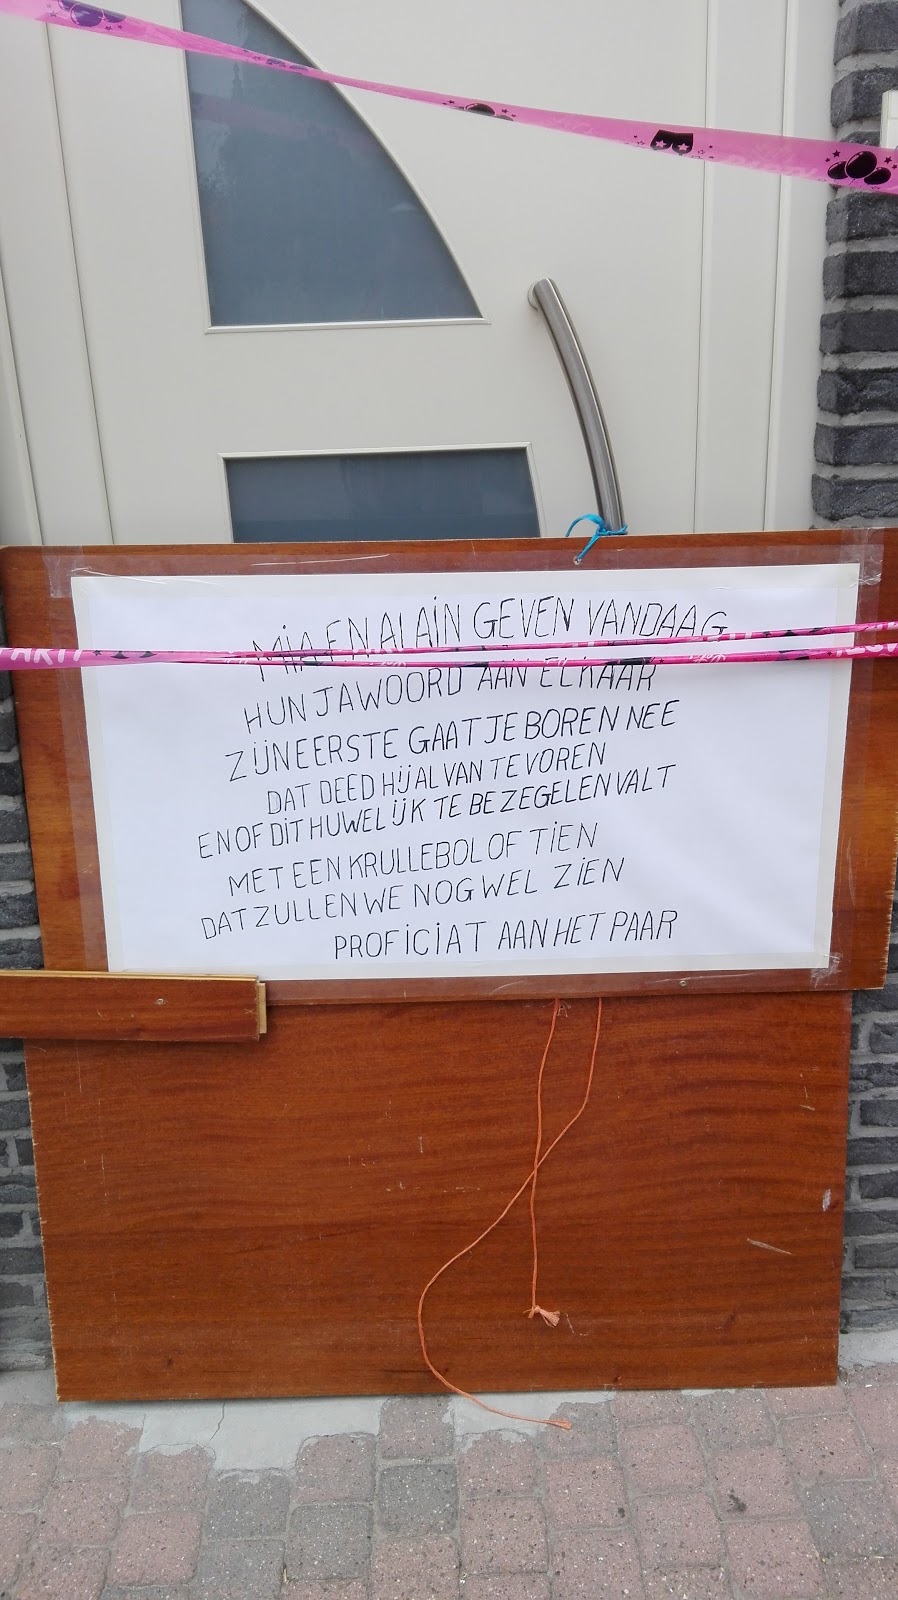 MIA EN ALAIN GEVEN VANDAAG
HUN JAWOORD AAN ELKAAR
ZIJN EERSTE GAATJE BOREN NEE
DAT DEED HIJ AL VAN TEVOREN
EN OF DIT HUWELIJK TE BEZEGELEN VALT
MET EEN KRULLEBOL OF TIEN
DAT ZULLEN WE NOG WEL ZIEN
PROFICIAT AAN HET PAAR